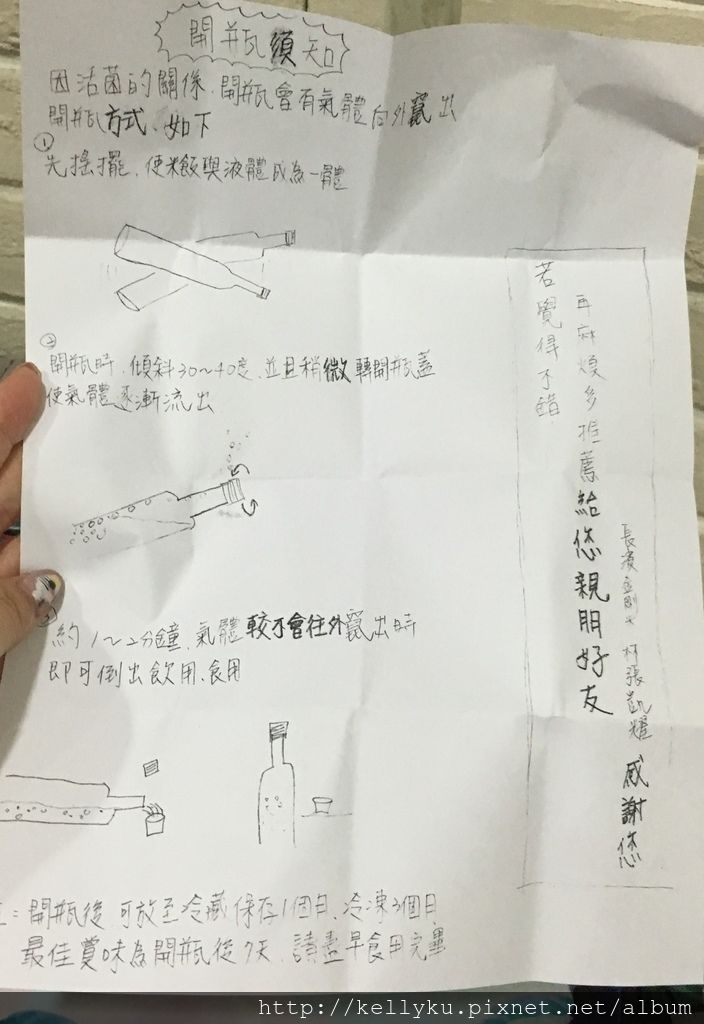 開瓶須知
因活菌的關係、開瓶會有氣體向外竄出
開瓶方式、如下
①
先搖擺、使米飯與液體成為一體
②
開瓶時、傾斜30~40度、並且稍微轉開瓶蓋
使氣體逐漸流出
約1~2分鐘、氣體較不會往外竄出時
即可倒出飲用、食用
：開瓶後、可放至冷藏保存1個月、冷凍3個月
最佳賞味為開瓶後7天、請盡早食用完畢
若覺得不錯
再麻煩多推薦給您親朋好友
長濱金剛 張凱耀 感謝您
http://kellyku.pixnet.net/album